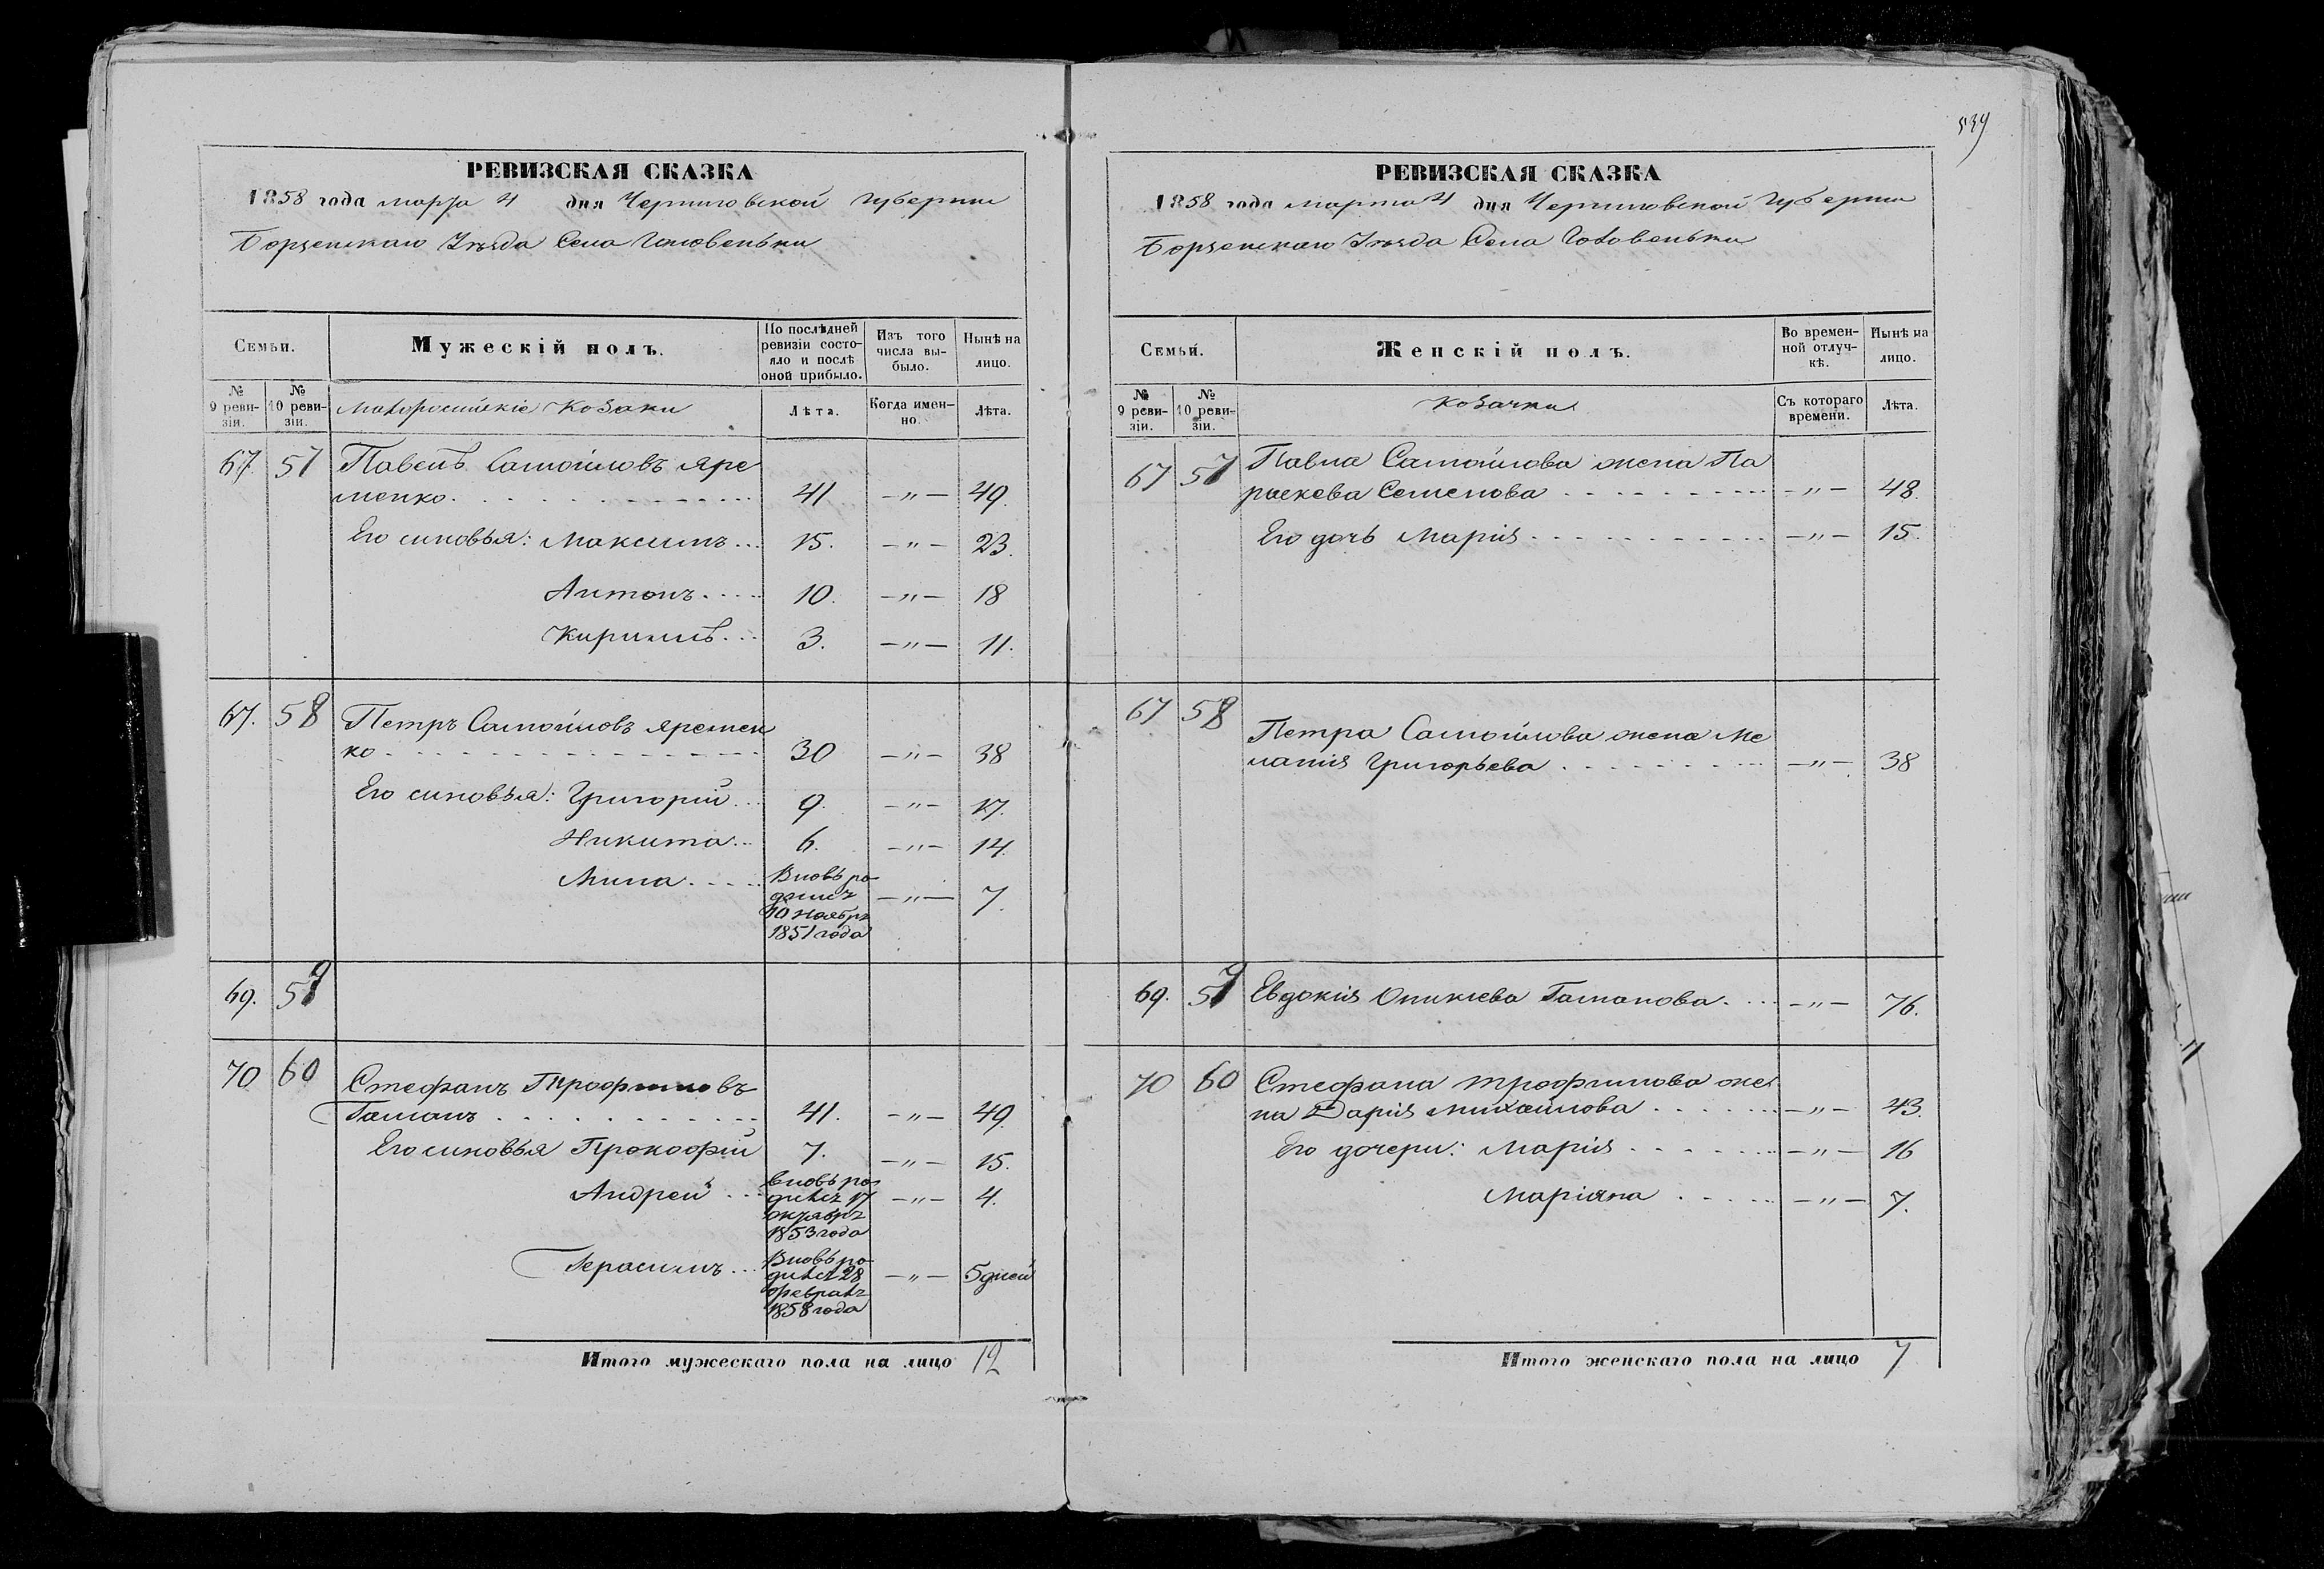 539
РЕВИЗСКАЯ СКАЗКА
1858 года марта 4 дня Черниговской Губернии
Борзенскаго Уѣзда Села Головеньки
Семьи.
Мужескій полъ.
По послѣдней ревизіи состояло и послѣ оной прибыло.
Изъ того числа выбыло.
Нынѣ на лицо.
№ 9 ревизіи.
№ 10 ревизіи.
Малоросійскіе Козаки
Лѣта.
Когда именно.
Лѣта.
67. 57 Павелъ Самойловъ Яре
менко. 41 —"— 49.
Его синовья: Максимъ... 15. —"— 23.
Антонъ.... 10. —"— 18
Кириллъ... 3. —"— 11.
67. 58 Петръ Самойловъ Яремен
ко 30 —"— 38
Его синовья: Григорій... 9. —"— 17.
Никита... 6. —"— 14.
Мина.... Вновь ро-
дилсъ —"— 7.
10 ноябръ
1851 года
69. 59
70 60 Стефанъ Трофимовъ
Гаманъ 41. —"— 49.
Его синовья Прокофій 7. —"— 15.
Андрей... вновь ро-
дилсъ 17 —"— 4.
октябръ
1853 года
Герасимъ... Вновь ро-
дилсъ 28 —"— 5 дней
февралъ
1858 года
Итого мужескаго пола на лицо 12
РЕВИЗСКАЯ СКАЗКА
1858 года марта 4 дня Черниговской Губернии
Борзенскаго Уѣзда Села Головеньки
Семьи.
Женскій полъ.
Во временной отлучкѣ.
Нынѣ на лицо.
№ 9 ревизіи.
№ 10 ревизіи.
Козачки
Съ котораго времени.
Лѣта.
67 57 Павла Самойлова жена Па
раскева Семенова —"— 48.
Его дочь Марія —"— 15.
67 58 Петра Самойлова жена Ме
ланія Григорьева —"— 38
69. 59 Евдокія Оникіева Гаманова. —"— 76.
70 60 Стефана Трофимова же
на Дарія Михайлова —"— 43.
Его дочери: Марія —"— 16
Маріяна —"— 7.
Итого женскаго пола на лицо 7